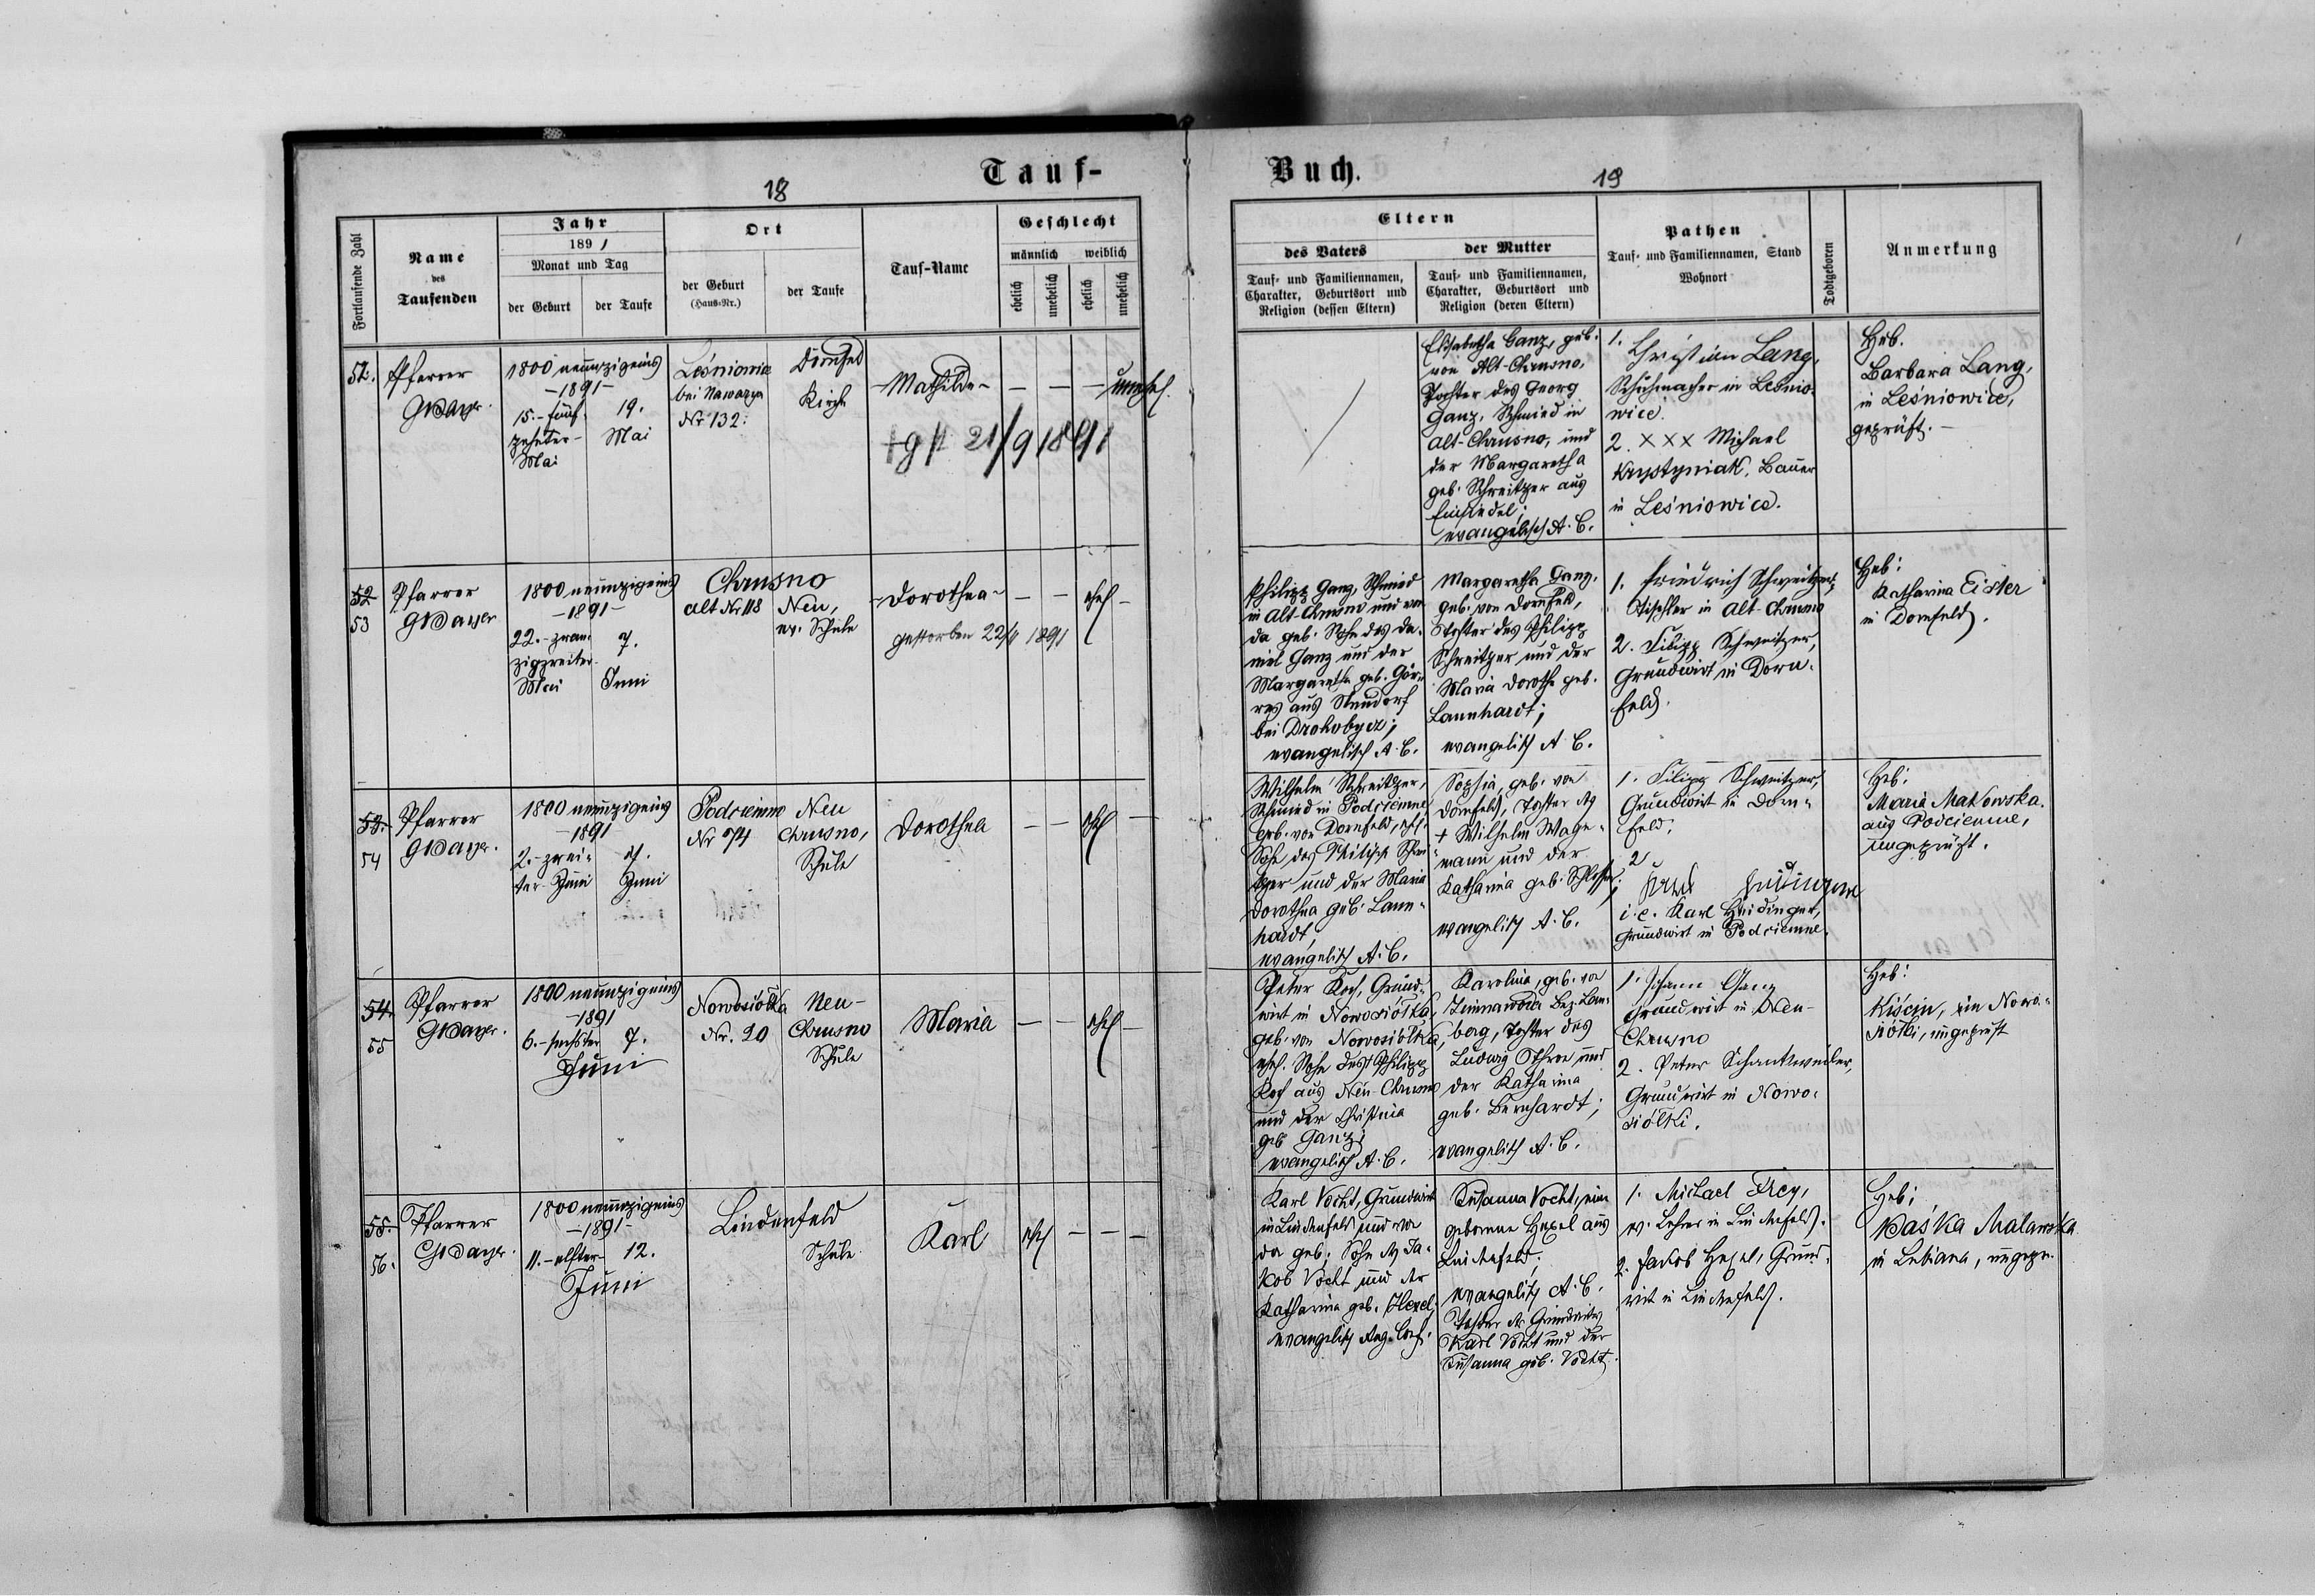 Tauf-
Buch.
18
19
Fortlaufende Zahl
Name
des
Taufenden
Jahr
1891
Monat und Tag
der Geburt
der Taufe
Ort
der Geburt
(Haus-Nr.)
der Taufe
Tauf-Name
Geschlecht
männlich weiblich
ehelich
unehelich
ehelich
unehelich
Eltern
des Vaters
der Mutter
Tauf- und Familiennamen,
Charakter, Geburtsort und
Religion (dessen Eltern)
Tauf- und Familiennamen,
Charakter, Geburtsort und
Religion (deren Eltern)
Pathen
Tauf- und Familiennamen, Stand
Wohnort
Todtgeboren
Anmerkung
52.
Pfarrer
1800 neunzigeins
-1891-
15.-fünf-
zehnter-
Mai
19.
Mai
bei Nawarya
Nr 132.
Dornfeld
Kirche
-Mathilde-
- - -
unehel.
21/9 1891
Elisabetha Ganz, geb.
von Alt-Chrusno,
Tochter des Georg
Ganz, Schmied in
Alt-Chrusno, und
der Margaretha
geb. Schreitzer aus
Einsiedel;
evangelisch A. C.
1. Christian Lang,
Schuhmacher in Lesnio-
wice.
2. XXX Michael
Krystyniak, Bauer
in Leśniowice.
Heb.
Barbara Lang,
in Leśniowice,
geprüft.-
52
53
Pfarrer
1800 neunzigeins
-1891-
22.-zwan-
zigzweiter-
Mai
7.
Juni
Chrusno
alt Nr 118
Neu,
ev. Schule
-Dorothea-
gestorben 22/ 1891
- -
ehel -
Philipp Ganz, Schmied
in Alt-Chrusno und von
da geb. Sohn des Da-
niel Ganz und der
Margaretha geb. Gör-
res aus Neudorf
bei Drohobycz;
evangelisch A. C.
Margaretha Ganz,
geb. von Dornfeld,
Tochter des Philipp
Schreitzer und der
Maria Dorothe geb.
Lannhardt;
evangelisch A. C.
1. Friedrich Schweitzer,
Tischler in Alt-Chrusno
2. Filipp Schweitzer,
Grundwirt in Dorn-
feld.
Heb:
Katharina Eister
in Dornfeld.
53.
54
Pfarrer
1800 neunzigeins
1891
2.-zwei-
ter-Juni
7.
Juni
Podciemne
Nr 74
Neu
Chrusno,
Schule
Dorothea
- -
ehel -
Wilhelm Schreitzer,
Schmied in Podciemne
geb. von Dornfeld, ehl.
Sohn des Philipp Schrei-
tzer und der Maria
Dorothea geb. Lann-
hardt,
evangelisch A. C.
Sophia, geb. von
Dornfeld, Tochter des
+ Wilhelm Wage-
mann und der
Katharina geb. Schlosser;
evangelisch A. C.
1. Filipp Schweitzer,
Grundwirt in Dorn-
feld;
2.
i.e. Karl Heidinger,
Grundwirt in Podciemne.
Heb:
Maria Makowska
aus Podciemne,
ungeprüft.
54.
55
Pfarrer
1800 neunzigeins
-1891
6.-sechster
7.
Juni
Nowosiółka
Nr. 20
Neu-
Chrusno
Schule
Maria
- -
ehel -
Peter Koch, Grund-
wirt in Nowosiółka,
geb. von Nowosiółka,
ehel. Sohn des Philipp
Koch aus Neu-Chrusno
und der Christina
geb Ganz;
evangelisch A. C.
Karolina, geb. von
Zimnawoda Bez. Lem-
berg, Tochter des
Ludwig und
der Katharina
geb. Bernhardt;
evangelisch A. C.
1. Johann Ganz
Grundwirt in Neu-
Chrusno
2. Peter Schantweiler,
Grundwirt in Nowo-
siółki.
Heb:
in Nowo-
siółki, ungeprüft
55.
56.
Pfarrer
1800 neunzigeins
-1891-
11.-elfter-
12.
Juni
Lindenfeld
Schule
Karl
ehel - - -
Karl Vocht, Grundwirt
in Lindenfeld und von
da geb., Sohn des Ja-
kob Vocht und der
Katharina geb. Hexel,
evangelisch Aug. Conf.
Susanna Vocht, eine
geborene Hexel aus
Lindenfeld;
evangelisch A. C.
Tochter des Grundwirts
Karl Vocht und der
Susanna geb. Vocht
1. Michael Frey,
ev. Lehrer in Lindenfeld.
2. Jakob Hexel, Grund-
wirt in Lindenfeld.
Heb:
Kaśka Malawska
in Lubiana, ungepr.